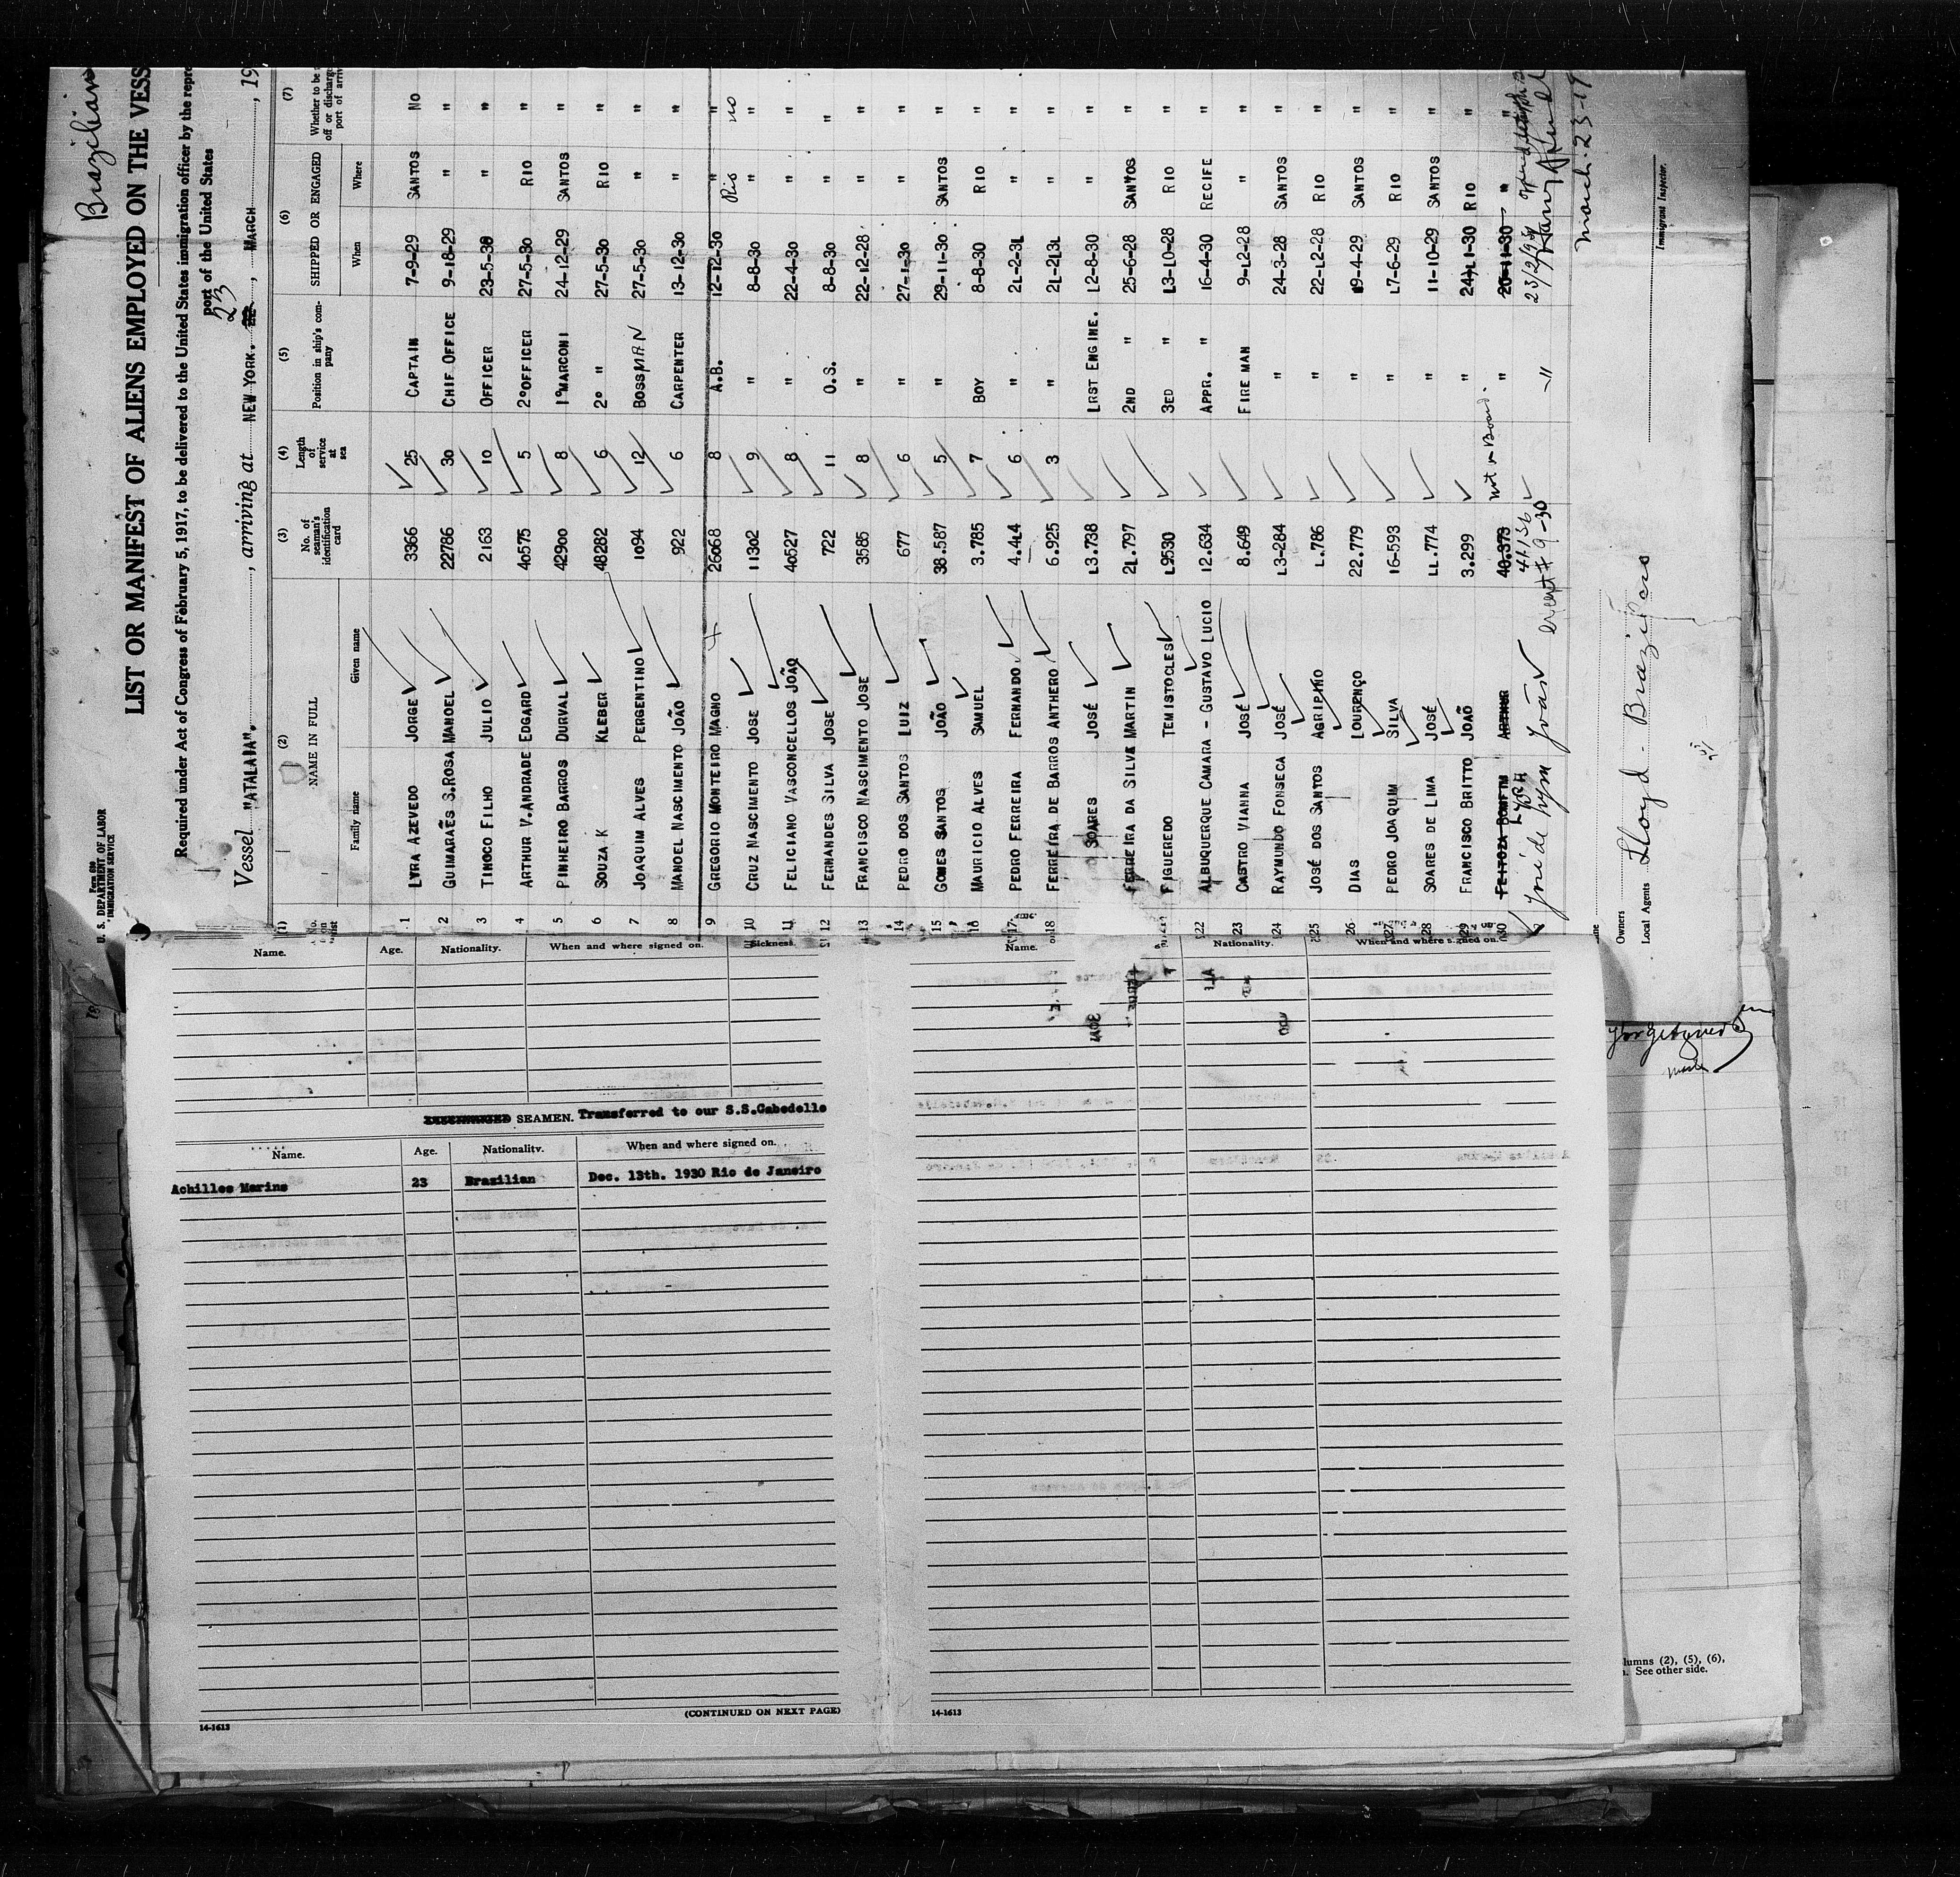 Brazilian
Form 680
U. S. DEPARTMENT OF LABOR
IMMIGRATION SERVICE
LIST OR MANIFEST OF ALIENS EMPLOYED ON THE VESS
Required under Act of Congress of February 5, 1917, to be delivered to the United States immigration officer by the repre
port of the United States
Vessel "ATALAIA"., arriving at NEW YORK. 23, MARCH, 19
(1) (2) (3) (4) (5) (6) (7)
NAME IN FULL No. of seaman's identification card Length of service at sea Position in ship's company SHIPPED OR ENGAGED Whether to be
off or discharge
port of arriv
Family name Given name When Where
1 LYRA AZEVEDO JORGE 3366 25 CAPTAIN 7-9-29 SANTOS NO
2 GUIMARAẼS S.ROSA MANOEL 22786 30 CHIF OFFICE 9-18-29 " "
3 TINOCO FILHO JULIO 2163 10 OFFICER 23-5-30 " "
4 ARTHUR V.ANDRADE EDGARD 40575 5 2ºOFFICER 27-5-30 RIO "
5 PINHEIRO BARROS DURVAL 42900 8 1ºMARCONI 24-12-29 SANTOS "
6 SOUZA K KLEBER 48282 6 2º " 27-5-30 RIO "
7 JOAQUIM ALVES PERGENTINO 1094 12 BOSSMAN 27-5-30 " "
8 MANOEL NASCIMENTO JOÃO 922 6 CARPENTER 13-12-30 " "
9 GREGORIO MONTEIRO MAGNO 26068 8 A.B. 12-12-30 " "
10 CRUZ NASCIMENTO JOSE 11302 9 " 8-8-30 " " Rio no
11 FELICIANO VASCONCELLOS JOÃO 40527 8 " 22-4-30 " "
12 FERNANDES SILVA JOSE 722 11 O.S. 8-8-30 " "
13 FRANCISCO NASCIMENTO JOSE 3585 8 " 22-12-28 " "
14 PEDRO DOS SANTOS LUIZ 677 6 " 27-1-30 " "
15 GOMES SANTOS JOÃO 38.587 5 " 29-11-30 SANTOS "
16 MAURICIO ALVES SAMUEL 3.785 7 BOY 8-8-30 RIO "
17 PEDRO FERREIRA FERNANDO. 4.4L4 6 " 2L-2-3L " "
18 FERREIRA DE BARROS ANTHERO 6.925 3 " 2L-2L3L " "
SOARES JOSÉ L3.738 LRST ENGINE. L2-8-30 " "
FERREIRA DA SILVA MARTIN 2L.797 2ND " 25-6-28 SANTOS "
FIGUEREDO TEMISTOCLES L9530 3ED " L3-L0-28 RIO "
22 ALBUQUERQUE CAMARA - GUSTAVO LUCIO 12.634 APPR. " 16-4-30 RECIFE "
23 CASTRO VIANNA JOSÉ 8.649 FIRE MAN 9-L2-28 " "
24 RAYMUNDO FONSECA JOSÉ L3-284 " 24-3-28 SANTOS "
25 JOSÉ DOS SANTOS AGRIPINO L.786 " 22-L2-28 RIO "
26 DIAS LOURENÇO 22.779 " 09-4-29 SANTOS "
27 PEDRO JOAQUIM SILVA 16-593 " L7-6-29 RIO "
28 SOARES DE LIMA JOSÉ LL.774 " 11-10-29 SANTOS "
29 FRANCISCO BRITTO JOAÕ 3.299 " 24-L1-30 RIO "
30 FEITOZA BONFIM ARTHUR 40.373 not on Board. " 26-11-30 " "
José de Lyra LYRA João 41136 -"- 23/2/931
except # 9-30
March-23-19
Immigrant Inspector.
Owners
Local Agents Lloyd - Brazileiro
Name. Age. Nationality. When and where signed on. Sickness.
SEAMEN. Transferred to our S.S.Cabedello
Name. Age. Nationality. When and where signed on.
Achilles Marins 23 Brazilian Dec. 13th. 1930 Rio de Janeiro
(CONTINUED ON NEXT PAGE)
14-1613
Name. Nationality. When and where signed on.
14-1613
lumns (2), (5), (6),
n. See other side.